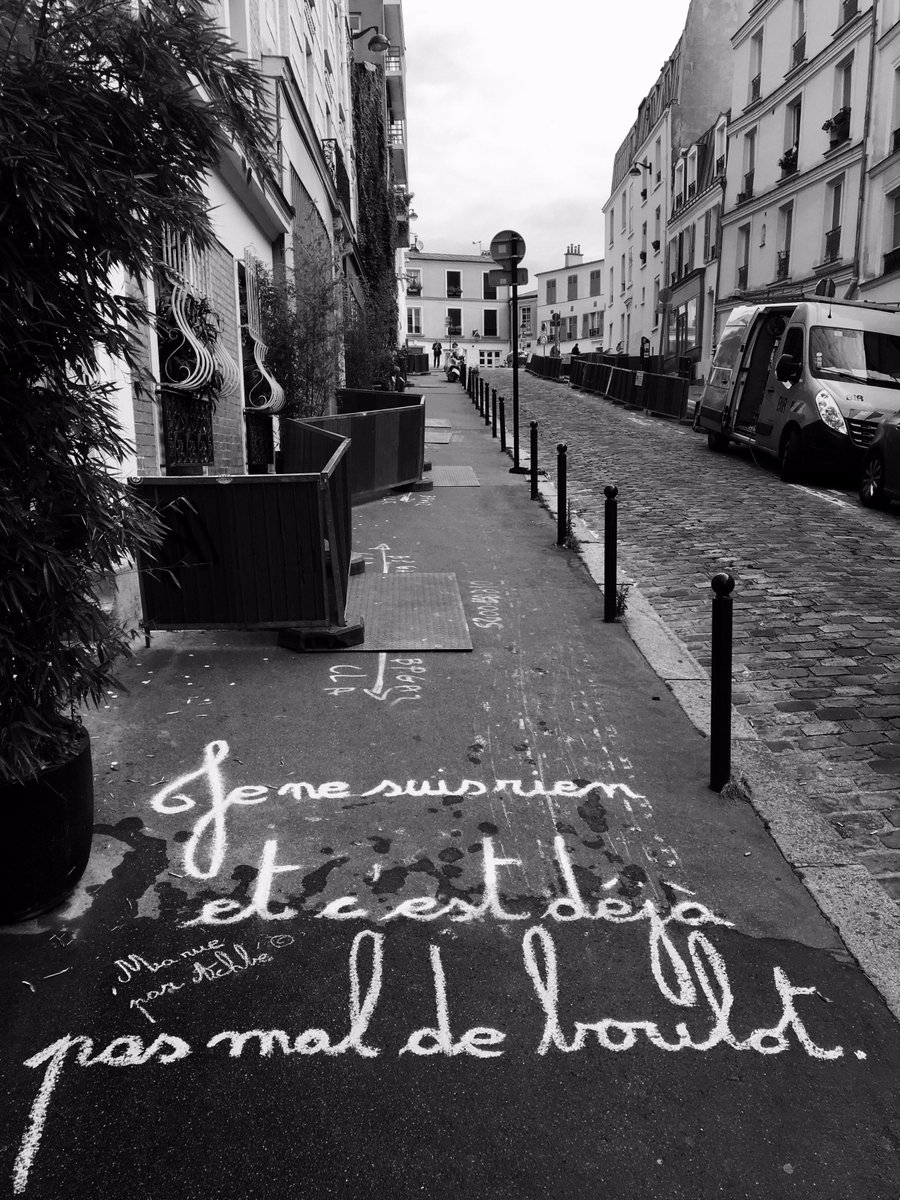 Je ne suis rien
et c'est déjà
Ma rue
par Achbé ©
pas mal de boulot.